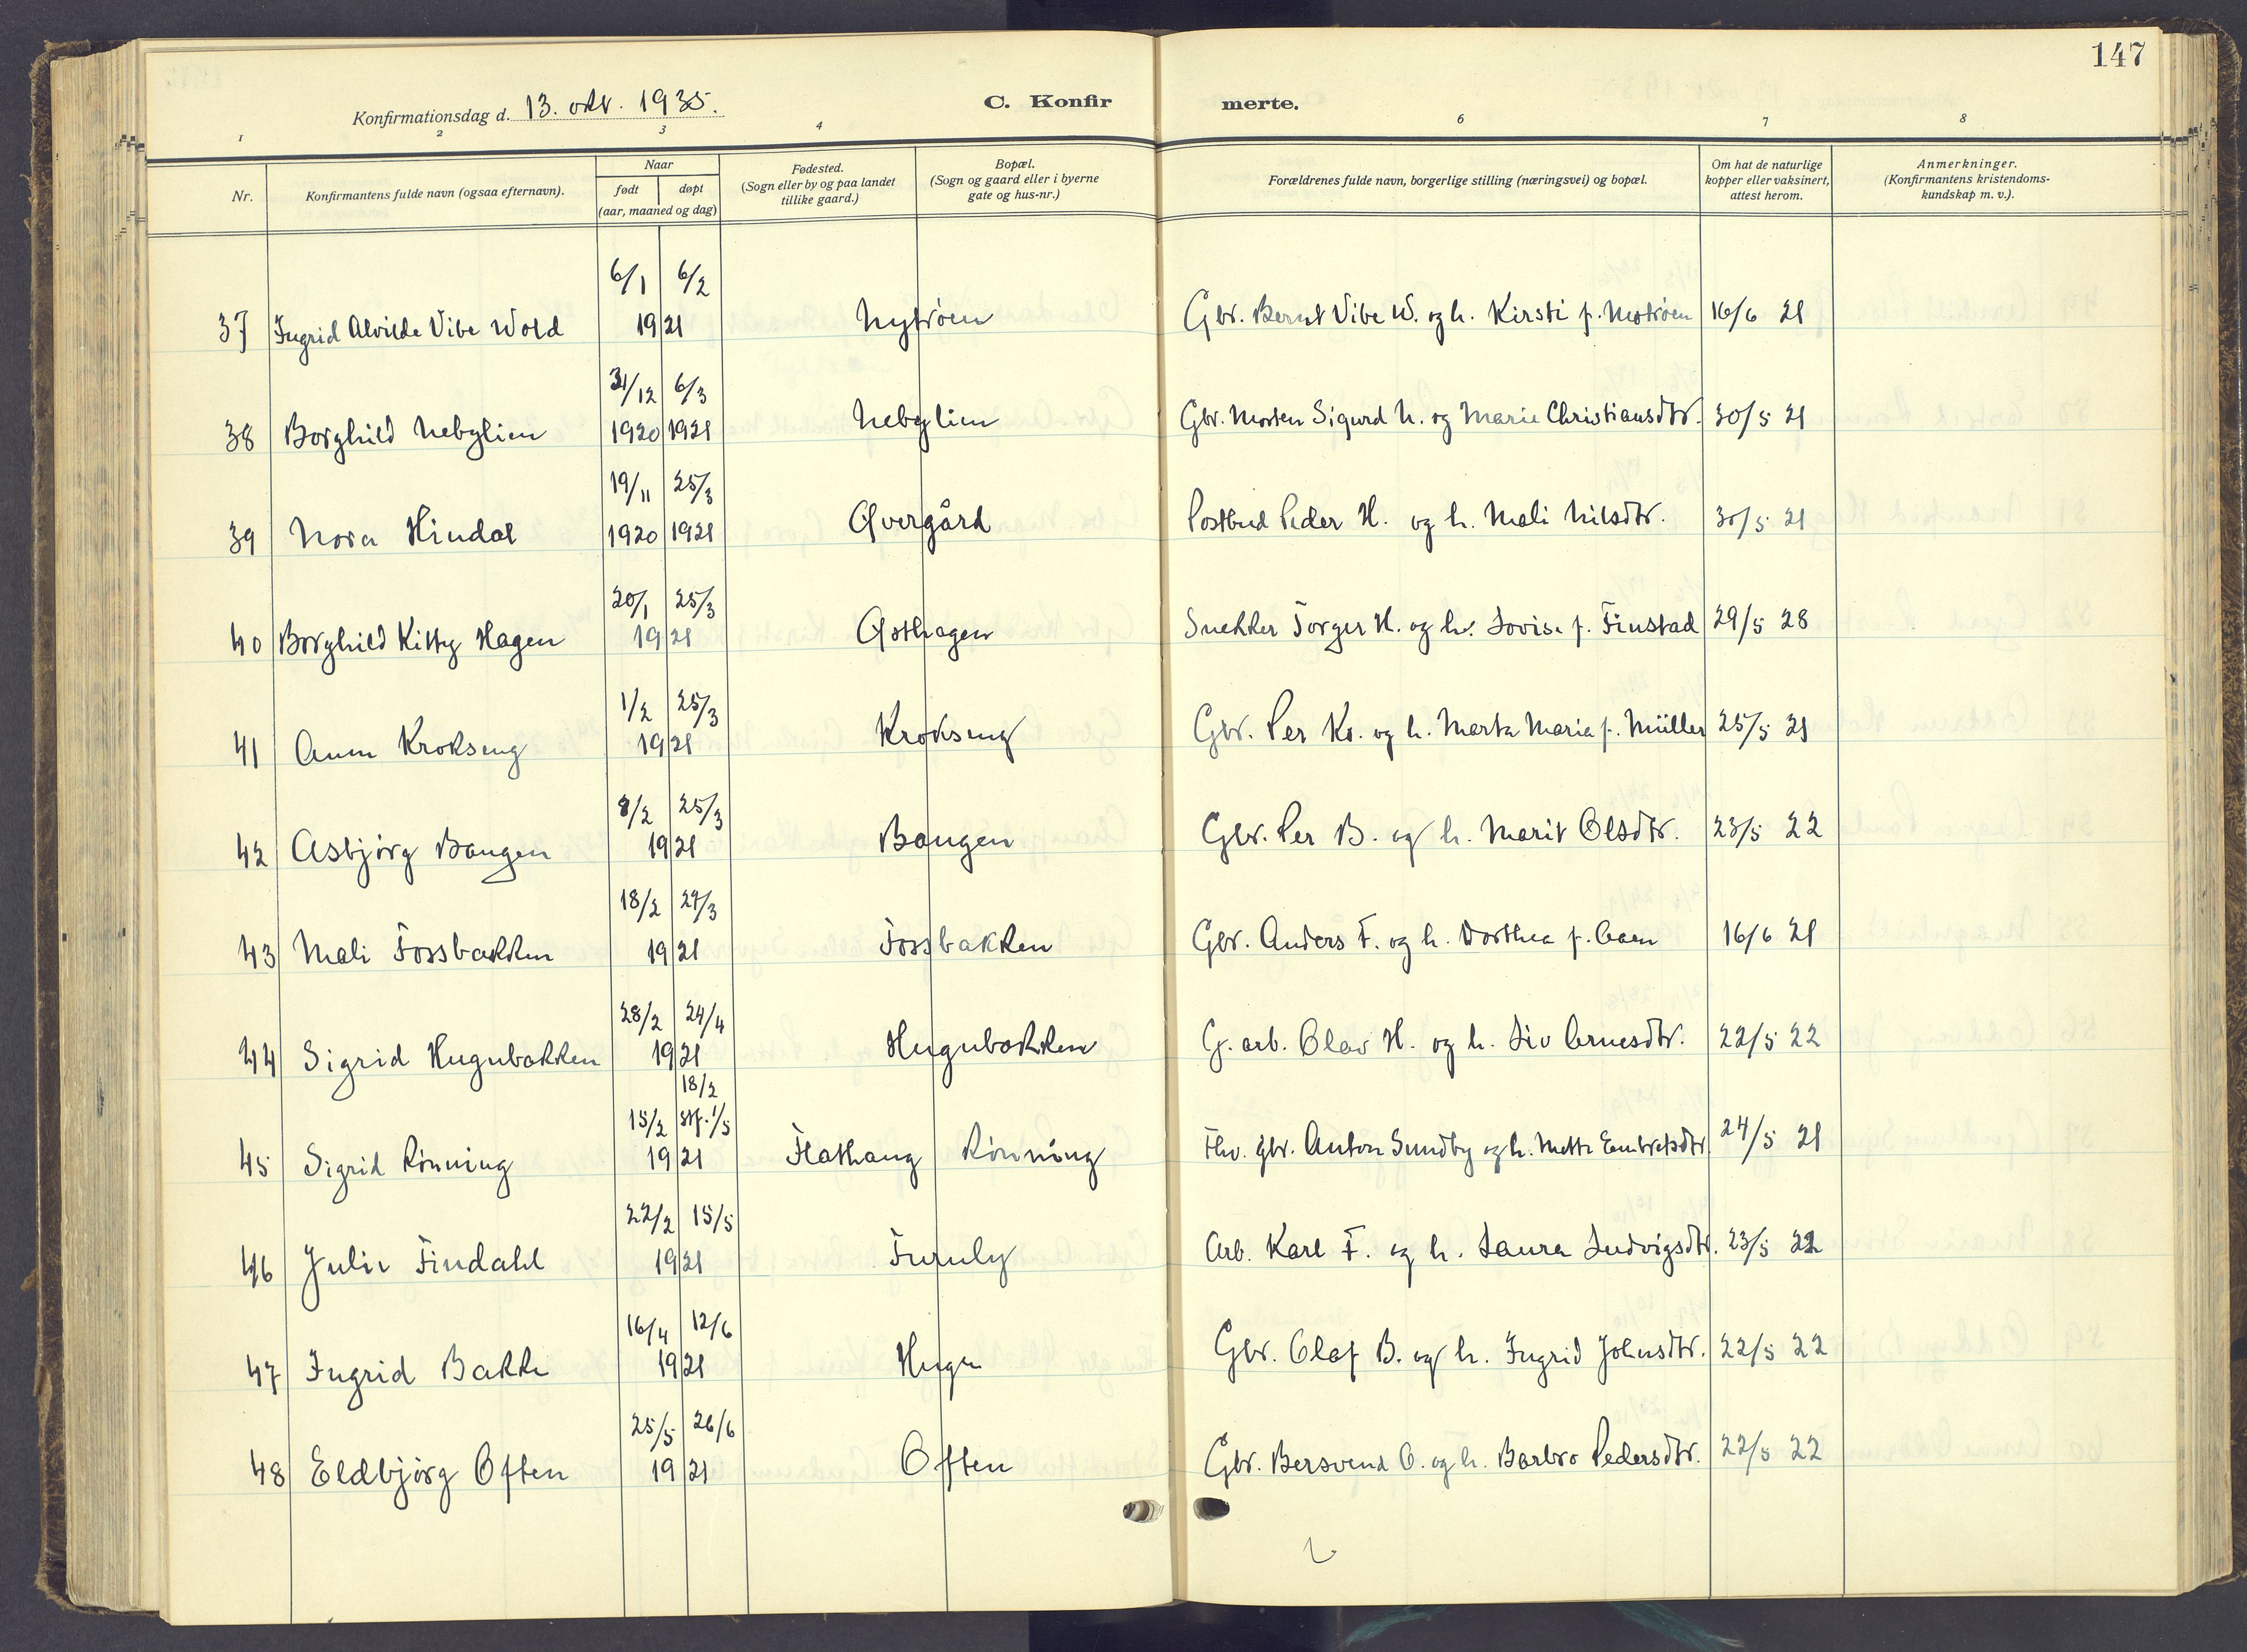 147
Konfirmationsdag d. 13. okt. 1935.
C. Konfirmerte.
1 2 3 4 6 7 8
Nr.
Konfirmantens fulde navn (ogsaa efternavn).
Naar
født døpt
(aar, maaned og dag)
Fødested.
(Sogn eller by og paa landet
tillike gaard.)
Bopæl.
(Sogn og gaard eller i byerne
gate og hus-nr.)
Forældrenes fulde navn, borgerlige stilling (næringsvei) og bopæl.
Om hat de naturlige
kopper eller vaksinert,
attest herom.
Anmerkninger.
(Konfirmantens kristendoms-
kundskap m. v.).
6/1 6/2
37 Ingrid Alvilde Vibe Wold 1921 Nytrøen Gbr. Bernt Vibe W. og h. Kirsti f. Motrøen 16/6 21
31/12 6/3
38 Borghild Nebylien 1920 1921 Nebylien Gbr. Morten Sigurd N. og Marie Christiansdtr. 30/5 21
19/11 25/3
39 Nora Hindal 1920 1921 Øvergård Postbud Peder H. og h. Mali Nilsdtr. 30/5 21
20/1 25/3
40 Borghild Kitty Hagen 1921 Østhagen Snekker Torger H. og h. Lovise f. Finstad 29/5 28
1/2 25/3
41 Anna Krokseng 1921 Krokseng Gbr. Per Kr. og h. Marta Maria f. Müller 25/5 21
8/2 25/3
42 Asbjørg Bangen 1921 Bangen Gbr. Per B. og h. Marit Olsdtr. 23/5 22
18/2 27/3
43 Mali Fossbakken 1921 Fossbakken Gbr. Anders F. og h. Dorthea f. Aaen 16/6 21
28/2 24/4
44 Sigrid Hugubakken 1921 Hugubakken G. arb. Olav H. og h. Liv Arnesdtr. 22/5 22
18/2
15/2 stf. 1/5
45 Sigrid Rønning 1921 Flathaug Rønning Fhv. gbr. Anton Sundby og h. Mette Embretsdtr. 24/5 21
22/2 15/5
46 Julie Findahl 1921 Furuly Arb. Karl F. og h. Laura Ludvigsdtr. 23/5 22
16/4 12/6
47 Ingrid Bakke 1921 Hugu Gbr. Olaf B. og h. Ingrid Johnsdtr. 22/5 22
25/5 26/6
48 Eldbjørg Often 1921 Often Gbr. Bersvend O. og h. Barbro Pedersdtr. 22/5 22